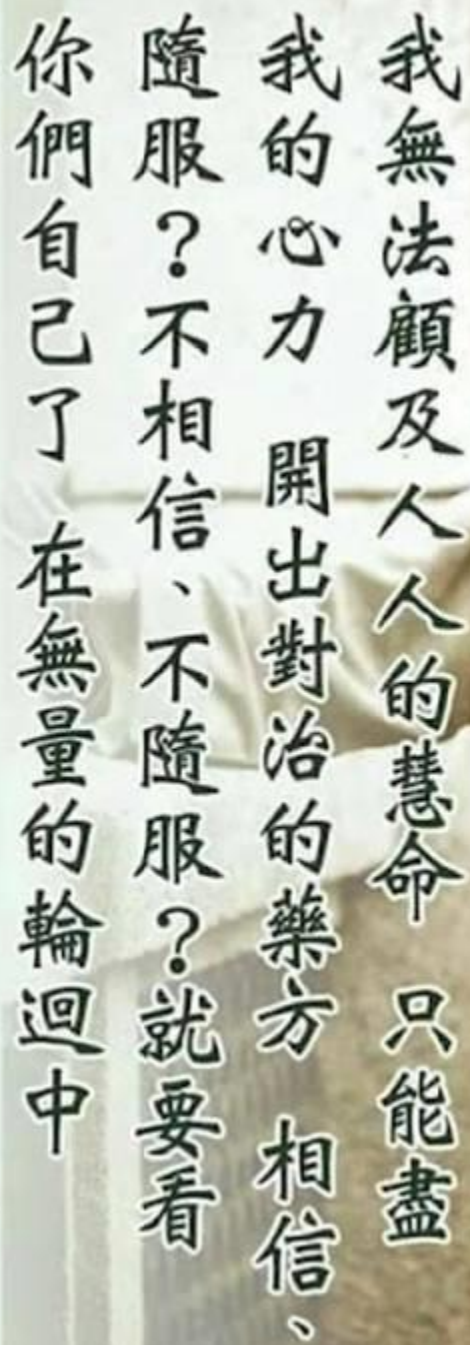 我無法顧及人人的慧命　只能盡
我的心力　開出對治的藥方　相信、
隨服？不相信、不隨服？就要看
你們自己了　在無量的輪迴中